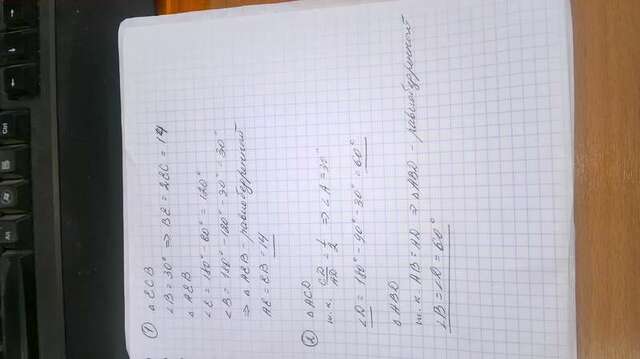 ① △ECB
∠B = 30° ⇒ BE = 2EC = 14
△AEB
∠E = 180° - 60° = 120°
∠B = 180° - 120° - 30° = 30°
⇒ △AEB - равнобедренный
AE = EB = 14
② △ACD
т.к. CD/AD = 1/2 ⇒ ∠A = 30°
∠D = 180° - 90° - 30° = 60°
△ABD
т.к. AB = AD ⇒ △ABD - равнобедренный
∠B = ∠D = 60°
Ctrl
Alt